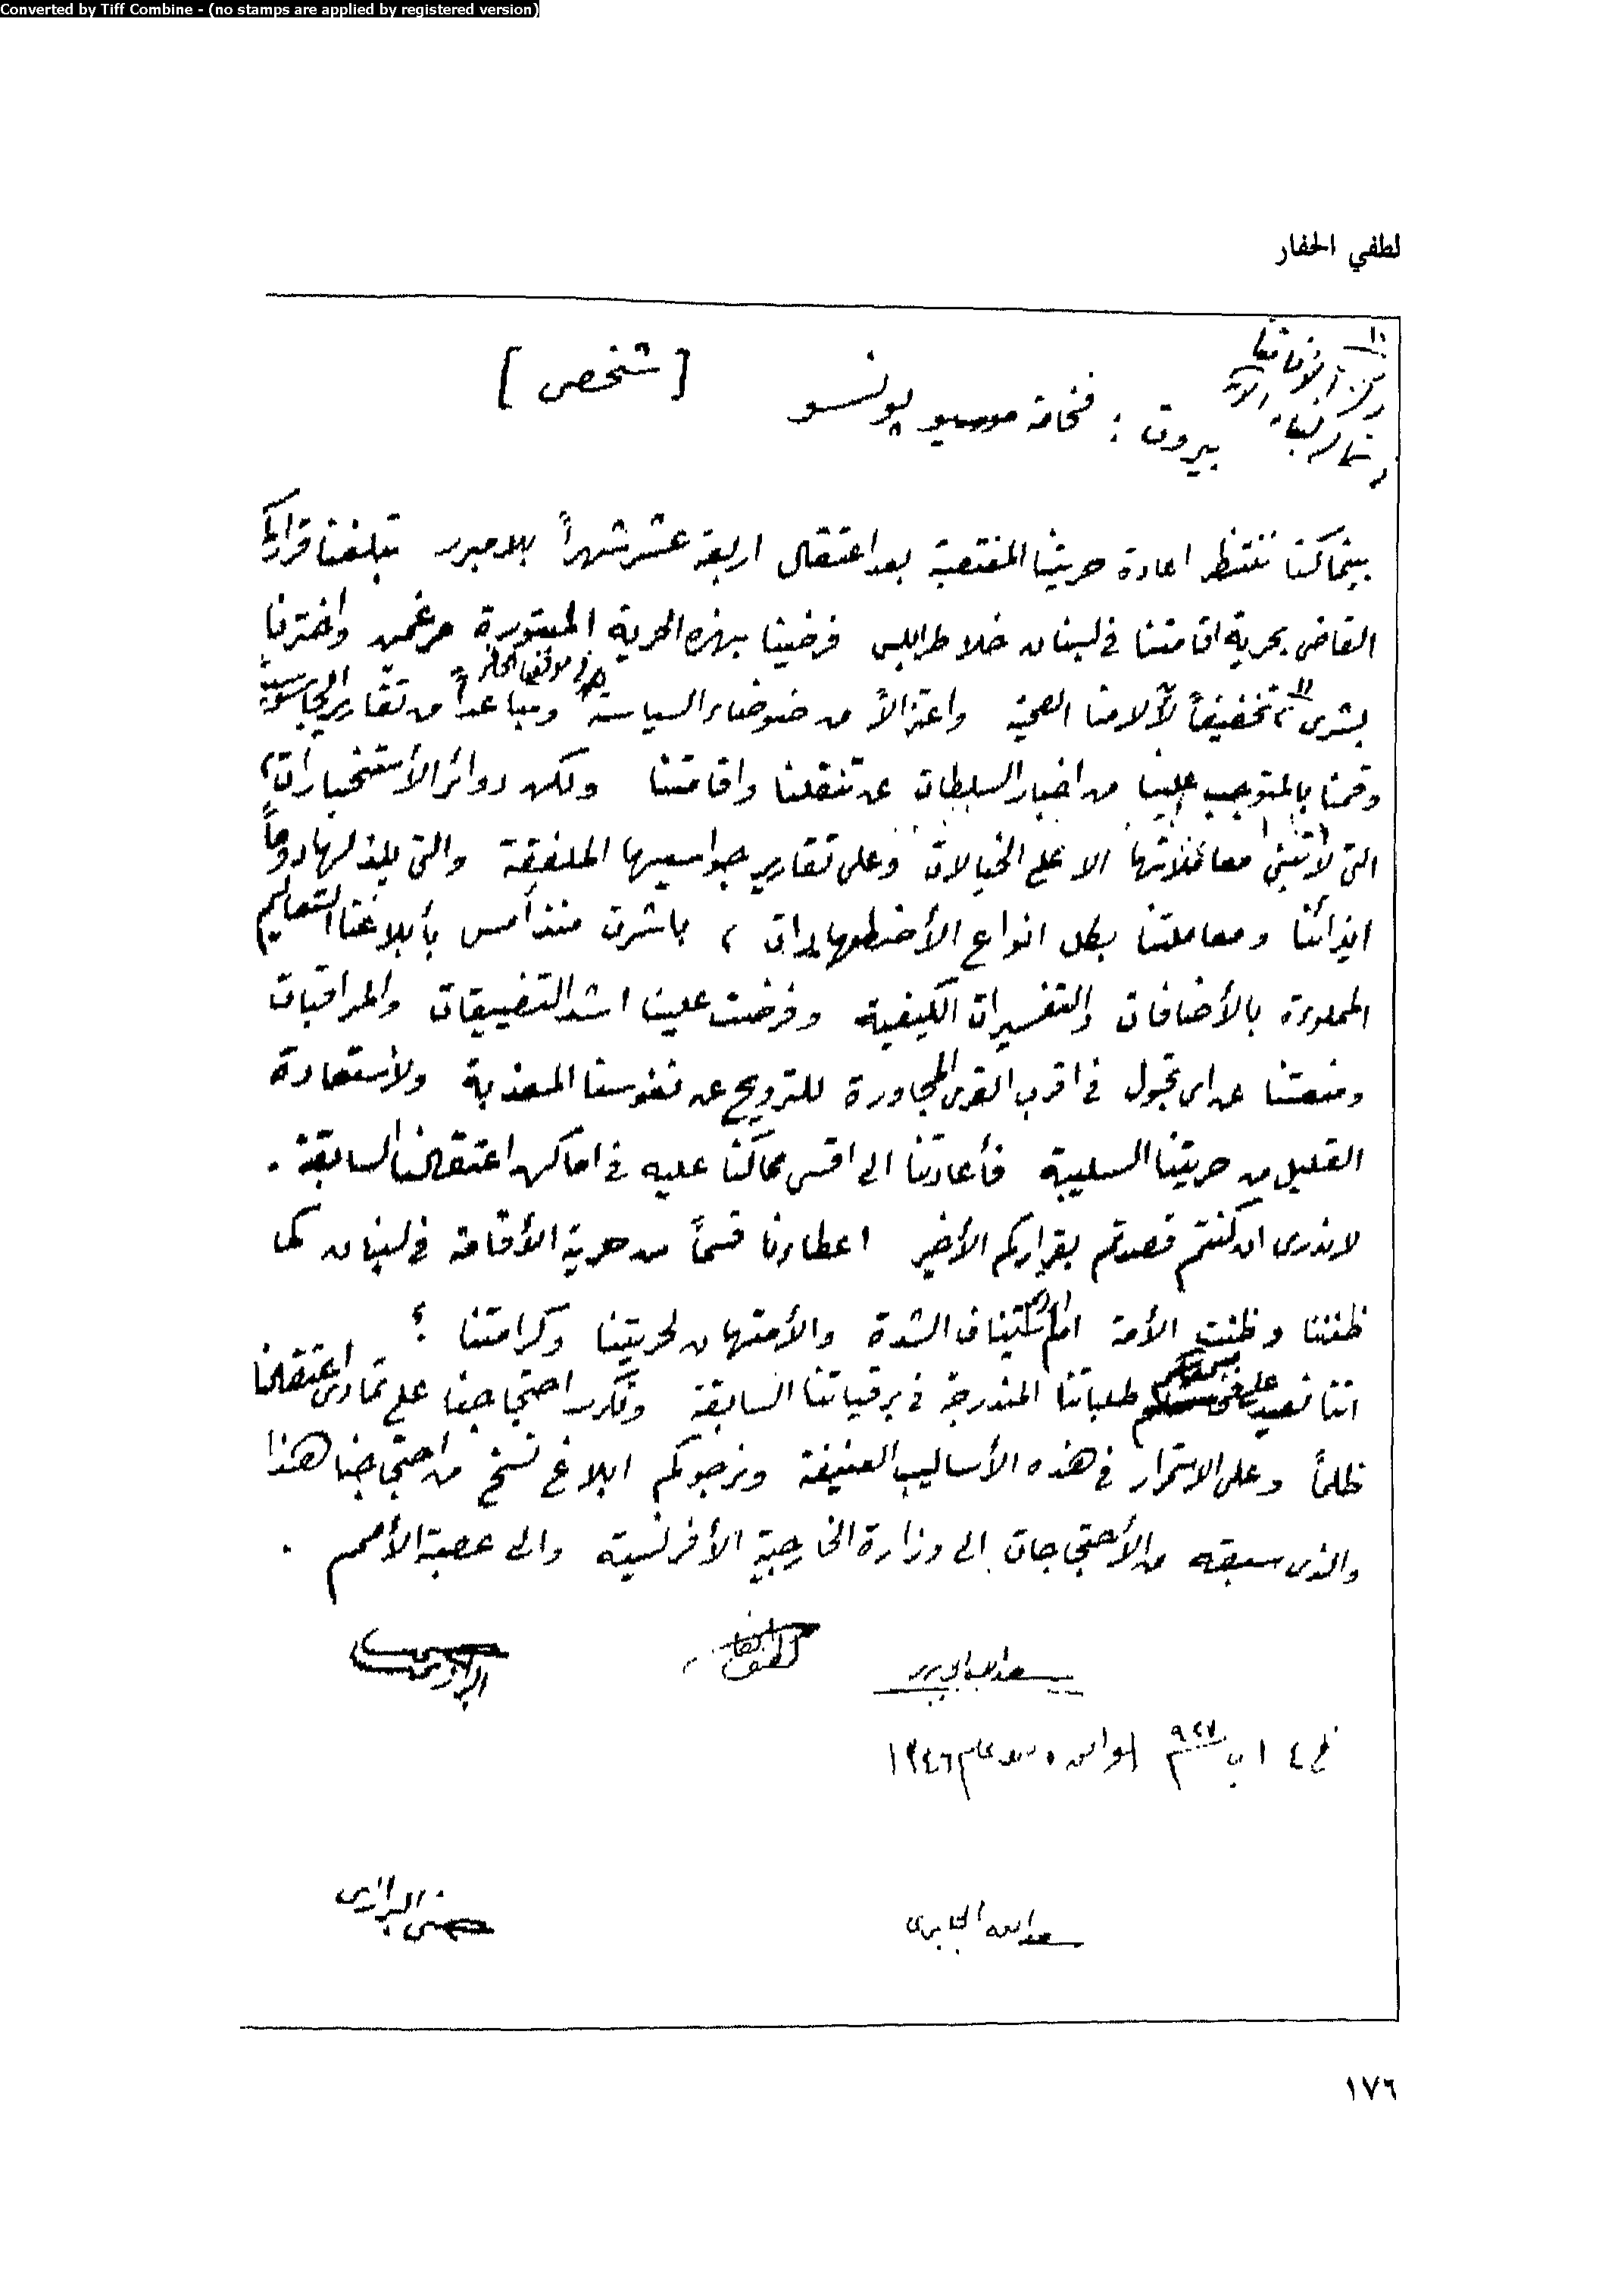 Converted by Tiff Combine - (no stamps are applied by registered version)
لطفي الحفار
[ شخصي ]
بيروت : فخامة مسيو بونسو
بينما كنا ننتظر اعادة حريتنا المغتصبة بعد اعتقال اربعة عشر شهراً بلا مبرر تبلغنا قراركم
القاضي بحرية اقامتنا في لبنان خلا طرابلس فرضينا بهذه الحرية المبتورة مرغمين واخترنا
بشري تخفيفاً لآلامنا الصحية واعتزالاً من ضوضاء السياسة ومباعداً من تقارير الجاسوسية
وقمنا بالمتوجب علينا من اخبار السلطات عن تنقلنا واقامتنا ولكن دوائر الأستخبارات
التي لا تبني معاملاتها الا على الخيالات وعلى تقارير جواسيسها الملفقة والتي يلذ لها دوماً
ايذائنا ومعاملتنا بكل انواع الأضطهادات ، باشرت منذ أمس بأبلاغنا التعاليم
المملوءة بالأضافات والتفسيرات الكيفية وفرضت علينا اشد التضييقات والمراقبات
ومنعتنا عن اي تجول في اقرب القرى المجاورة للترويح عن نفوسنا المعذبة ولأستعادة
القليل من حريتنا السليبة فأعادتنا الى اقسى مما كنا عليه في اماكن اعتقالنا السابقة .
لا ندري ان كنتم قصدتم بقراركم الأخير اعطاءنا قسماً من حرية الأقامة في لبنان كما
ظننا وظنت الأمة ام استيناف الشدة والأمتهان لحريتنا وكرامتنا ؟
اننا نعيد على طلباتنا المندرجة في برقياتنا السابقة ونكرر احتجاجنا على تمادي اعتقالنا
ظلماً وعلى الاستمرار في هذه الأساليب العنيفة ونرجوكم ابلاغ نسخ من احتجاجنا هذا
والذي سبقه من الأحتجاجات الى وزارة الخارجية الأفرنسية والى عصبة الأمم .
سعد الله الجابري
في ٤ اب ٩٢٧ الموافق صفر عام ١٣٤٦
سعد الله الجابري حسني البرازي
١٧٦